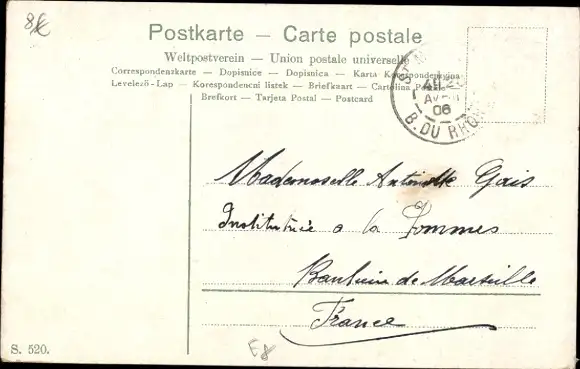 8€
Postkarte — Carte postale
Weltpostverein — Union postale universelle
Correspondenzkarte — Dopisnice — Dopisnica — Karta Korespondencyjna
Levelező-Lap — Korespondencni listek — Briefkaart — Cartolina Postale
Brefkort — Tarjeta Postal — Postcard
AVRIL
06
B. DU RHONE
Mademoiselle Antoinette Gais
Institutrice a la Pommes
Banlieue de Marseille
France
S. 520.
E8